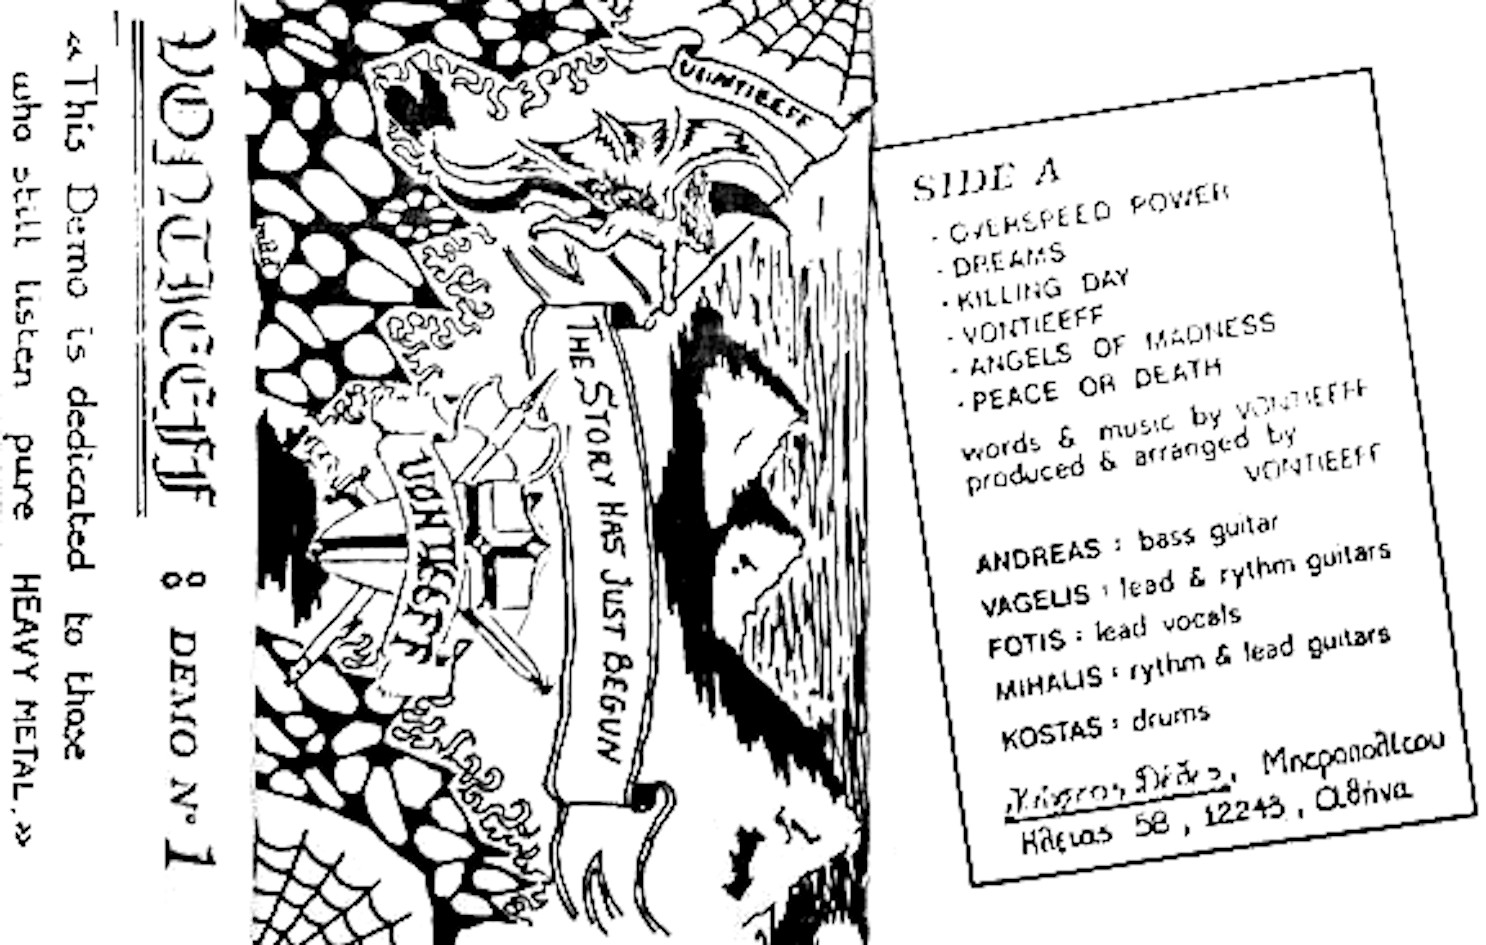 «This Demo is dedicated to those
who still listen pure HEAVY METAL.»
VONTIEEFF 8 DEMO No 1
VONTIEEFF
THE STORY HAS JUST BEGUN
VONTIEEFF
SIDE A
- OVERSPEED POWER
- DREAMS
- KILLING DAY
- VONTIEEFF
- ANGELS OF MADNESS
- PEACE OR DEATH
words & music by VONTIEEFF
produced & arranged by
VONTIEEFF
ANDREAS : bass guitar
VAGELIS : lead & rythm guitars
FOTIS : lead vocals
MIHALIS : rythm & lead guitars
KOSTAS : drums
Μπεροπούλου
58, 12243, Αθήνα